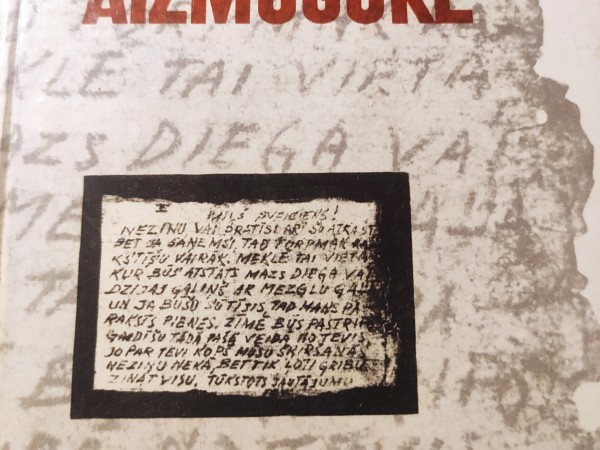 AIZMUGURE
KLE TAI VIETA
AZS DIEGA VAI
ME
MĪĻŠ SVEICIENS!
NEZINU VAI PRATĪSI ARĪ ŠO ATRAST
BET JA SAŅEMSI, TAD TURPMĀK RA
KSTĪŠU VAIRĀK. MEKLĒ TAI VIETĀ
KUR BŪS ATSTĀTS MAZS DIEGA VAI
DZIJAS GALIŅŠ AR MEZGLU GALĀ
UN JA BŪŠU SŪTĪJIS, TAD MANS PA
RAKSTS PIENES. ZĪME BŪS PASTRĪP
GAIDĪŠU TĀDĀ PAŠĀ VEIDĀ NO TEVIS,
JO PAR TEVI KOPŠ MŪSU ŠĶIRŠANĀS
NEZINU NEKĀ, BET TIK ĻOTI GRIBU
ZINĀT VISU, TŪKSTOTS JAUTĀJUMU